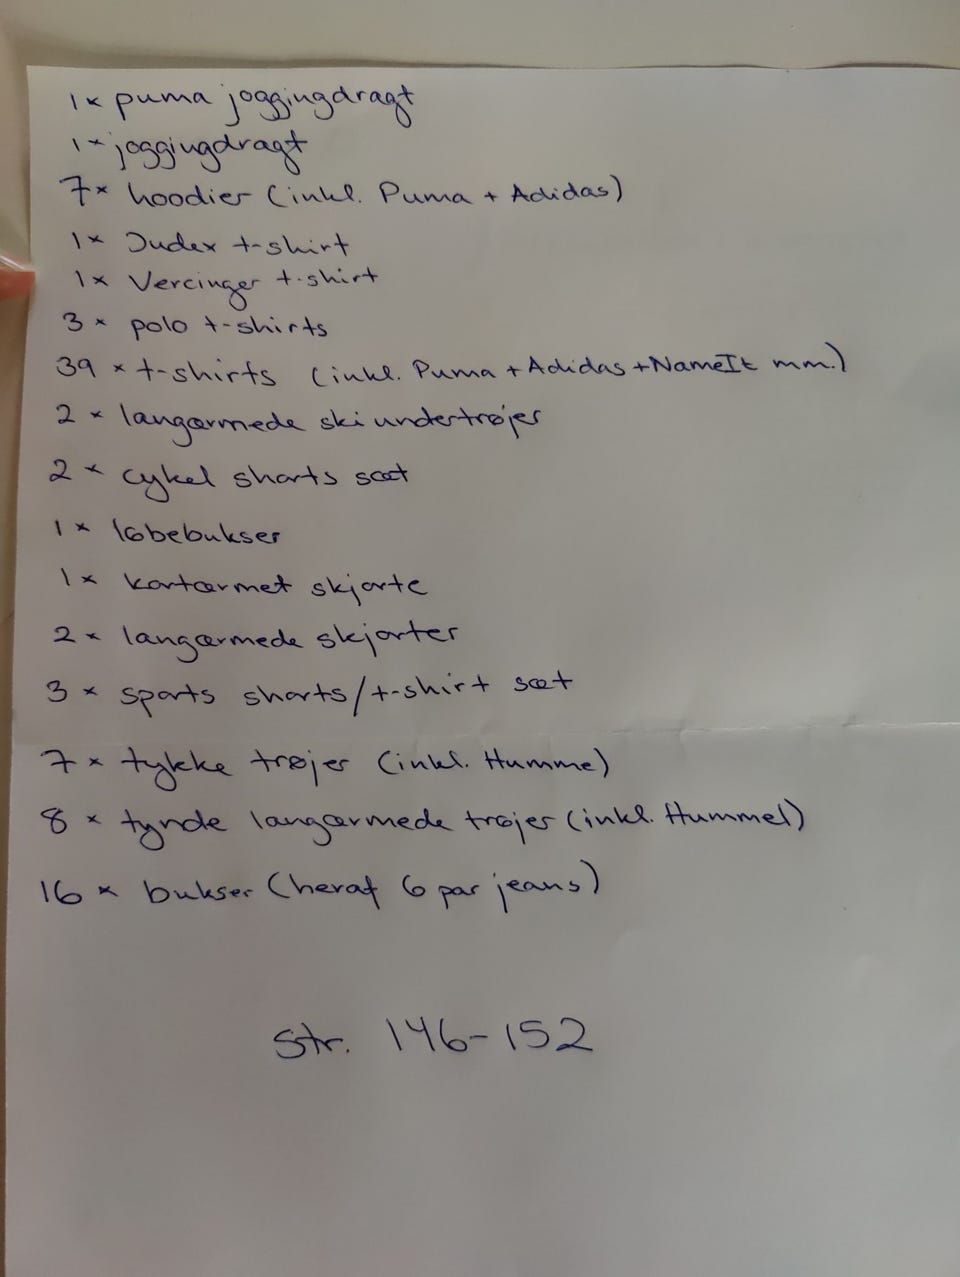 1x puma joggingdragt
1x joggingdragt
7x hoodier (inkl. Puma + Adidas)
1x Judex t-shirt
1x Vercinger t-shirt
3x polo t-shirts
39x t-shirts (inkl. Puma + Adidas + NameIt mm.)
2x langærmede ski undertrøjer
2x cykel shorts sæt
1x løbebukser
1x kortærmet skjorte
2x langærmede skjorter
3x sports shorts/t-shirt sæt
7x tykke trøjer (inkl. Humme)
8x tynde langærmede trøjer (inkl. Hummel)
16x bukser (heraf 6 par jeans)
Str. 146-152